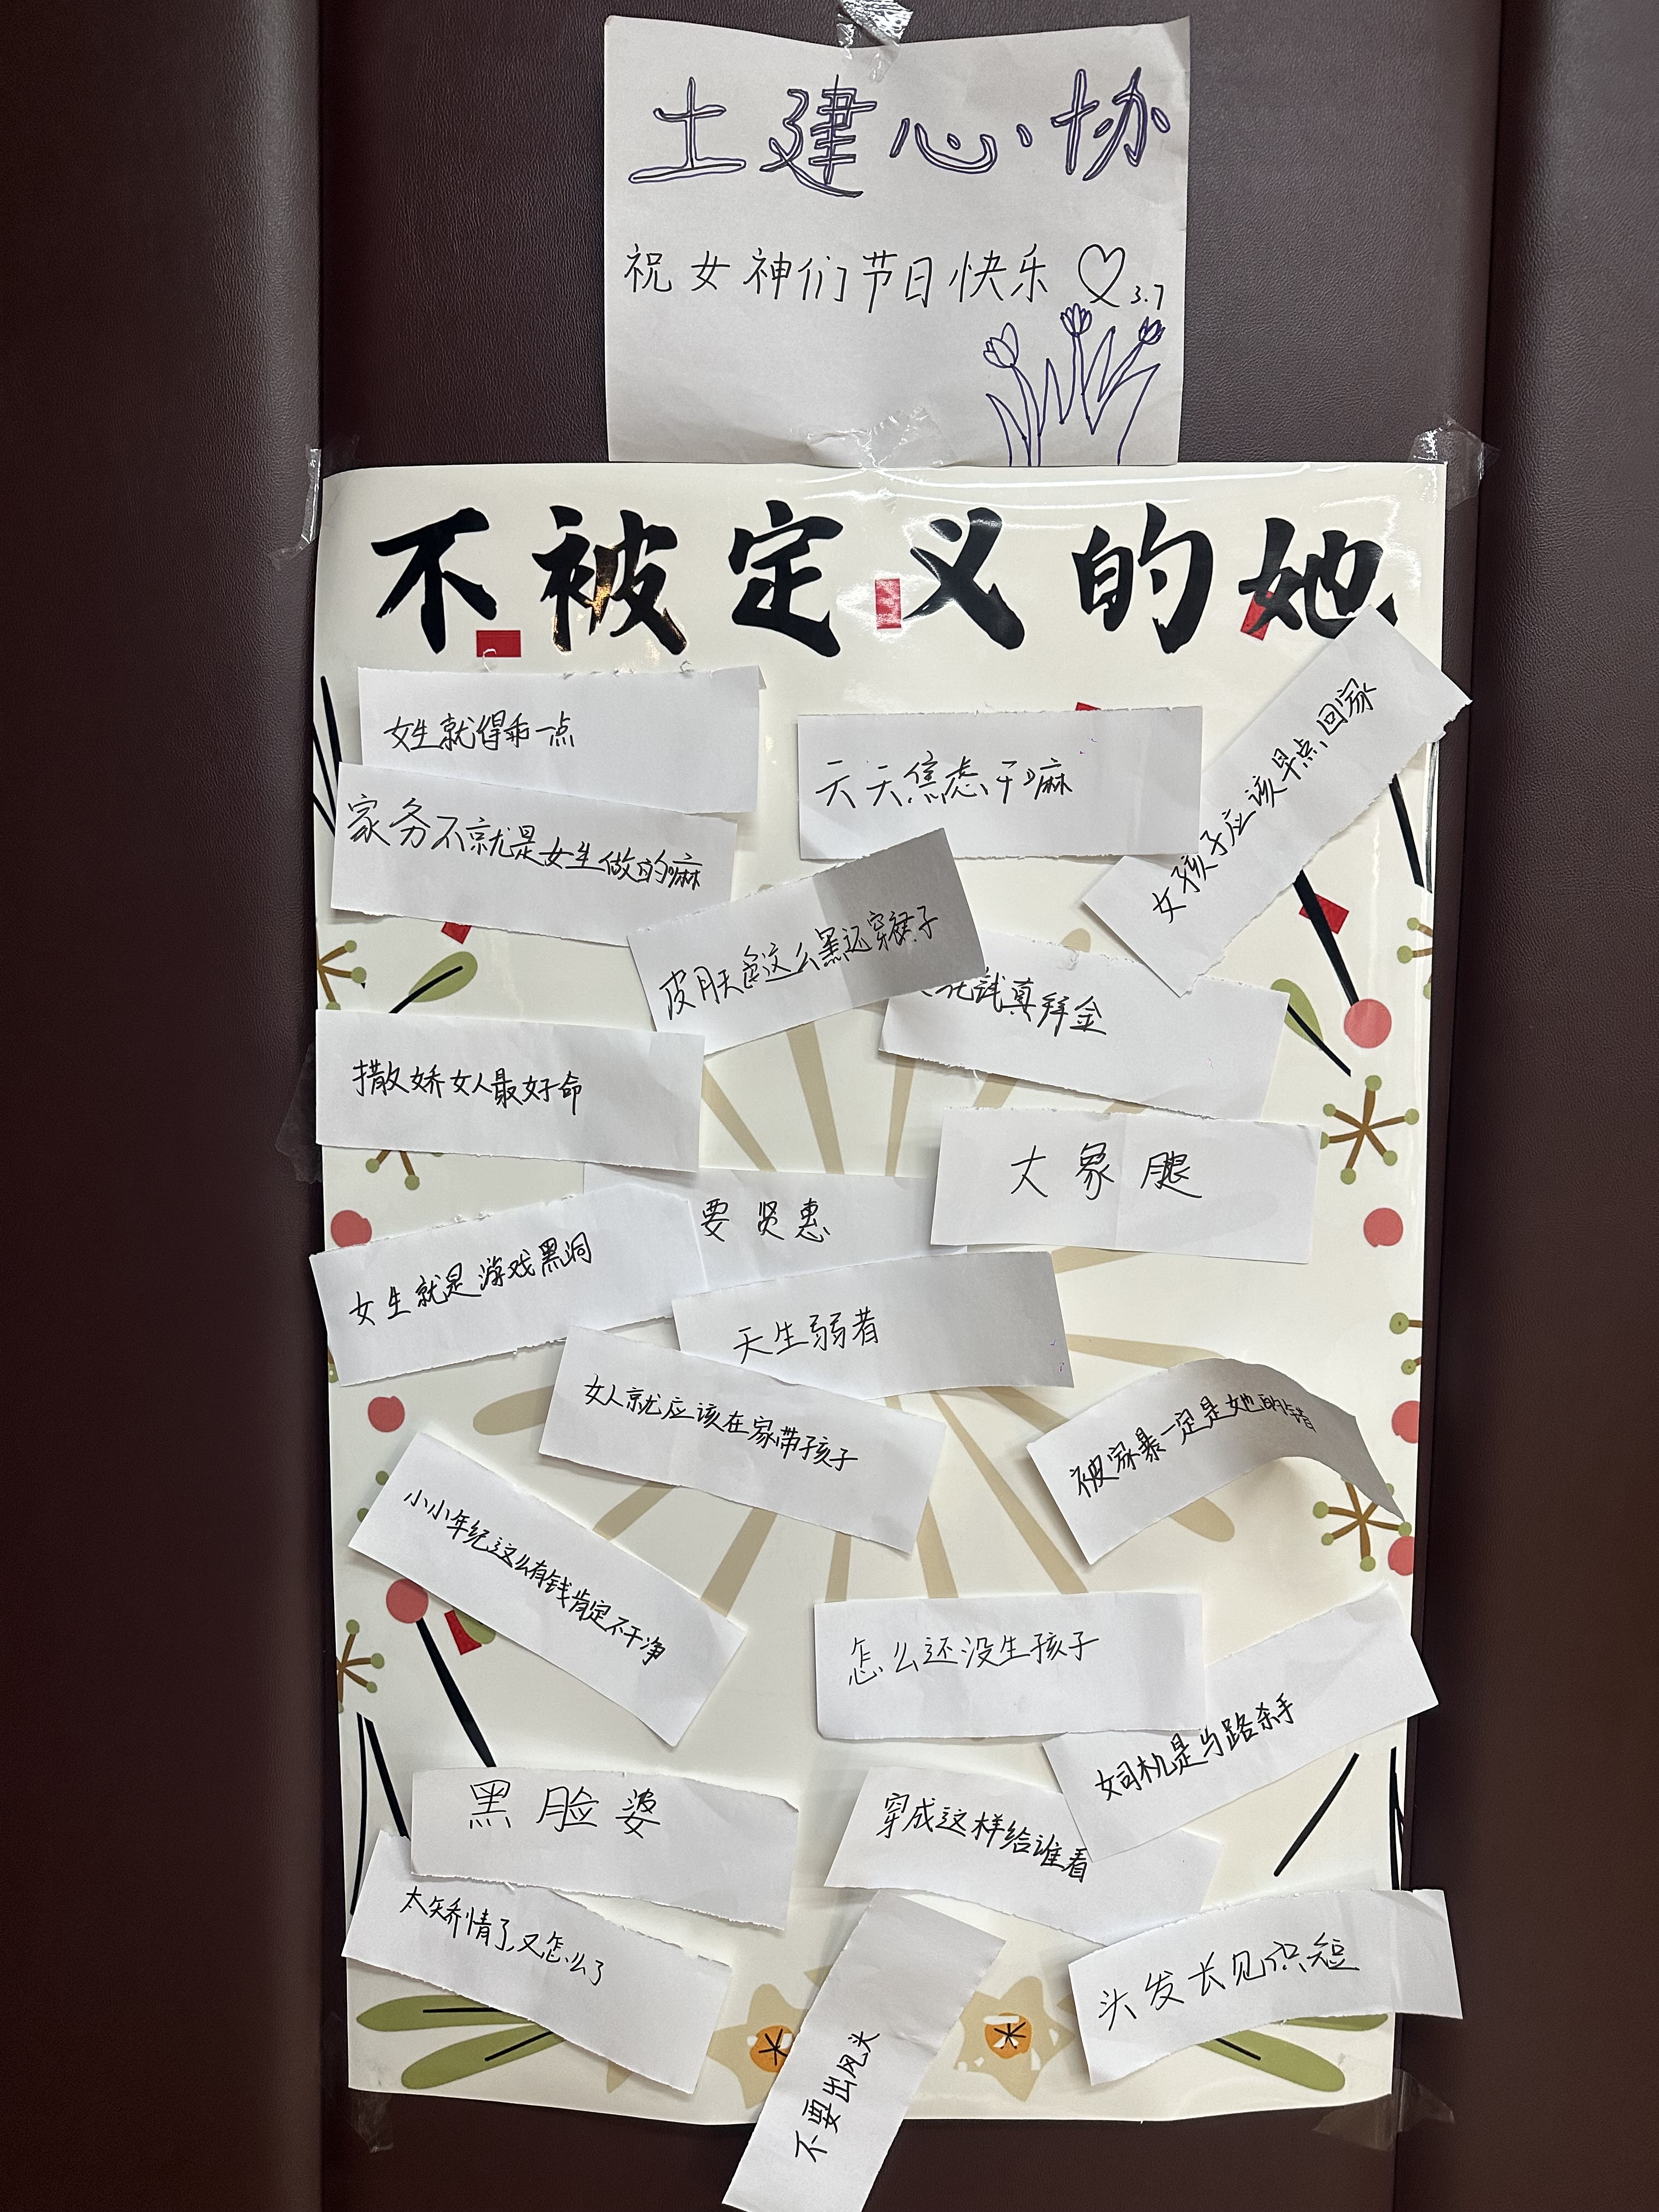 土建心协
祝女神们节日快乐 3.7
不被定义的她
女生就得乖一点
天天焦虑干嘛
女孩子应该早点回家
家务不就是女生做的嘛
皮肤这么黑还穿裙子
真拜金
撒娇女人最好命
大象腿
要贤惠
女生就是游戏黑洞
天生弱者
女人就应该在家带孩子
被家暴一定是她的错
小小年纪这么有钱肯定不干净
怎么还没生孩子
女司机是马路杀手
黑脸婆
穿成这样给谁看
太矫情了,又怎么了
头发长见识短
不要出风头